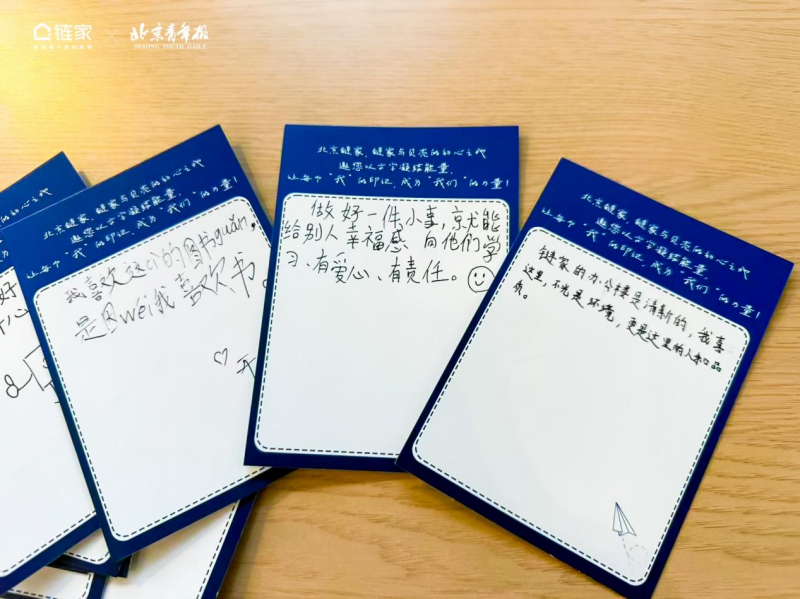 链家
北京青年报
BEIJING YOUTH DAILY
好
心
北京链家、链家与贝壳的初心之代
邀您以文字凝结能量,
让每个“我”的印记,成为“我们”的力量!
我喜欢这ci的图书guǎn,
是因wèi我喜欢书。
北京链家、链家与贝壳的初心之代
邀您以文字凝结能量,
让每个“我”的印记,成为“我们”的力量!
做好一件小事,就能
给别人幸福感 向他们学
习、有爱心、有责任。
北京链家、链家与贝壳的初心之代
邀您以文字凝结能量,
让每个“我”的印记,成为“我们”的力量!
链家的办公楼是清新的,我喜
这里,不光是环境,更是这里的人和品
质。